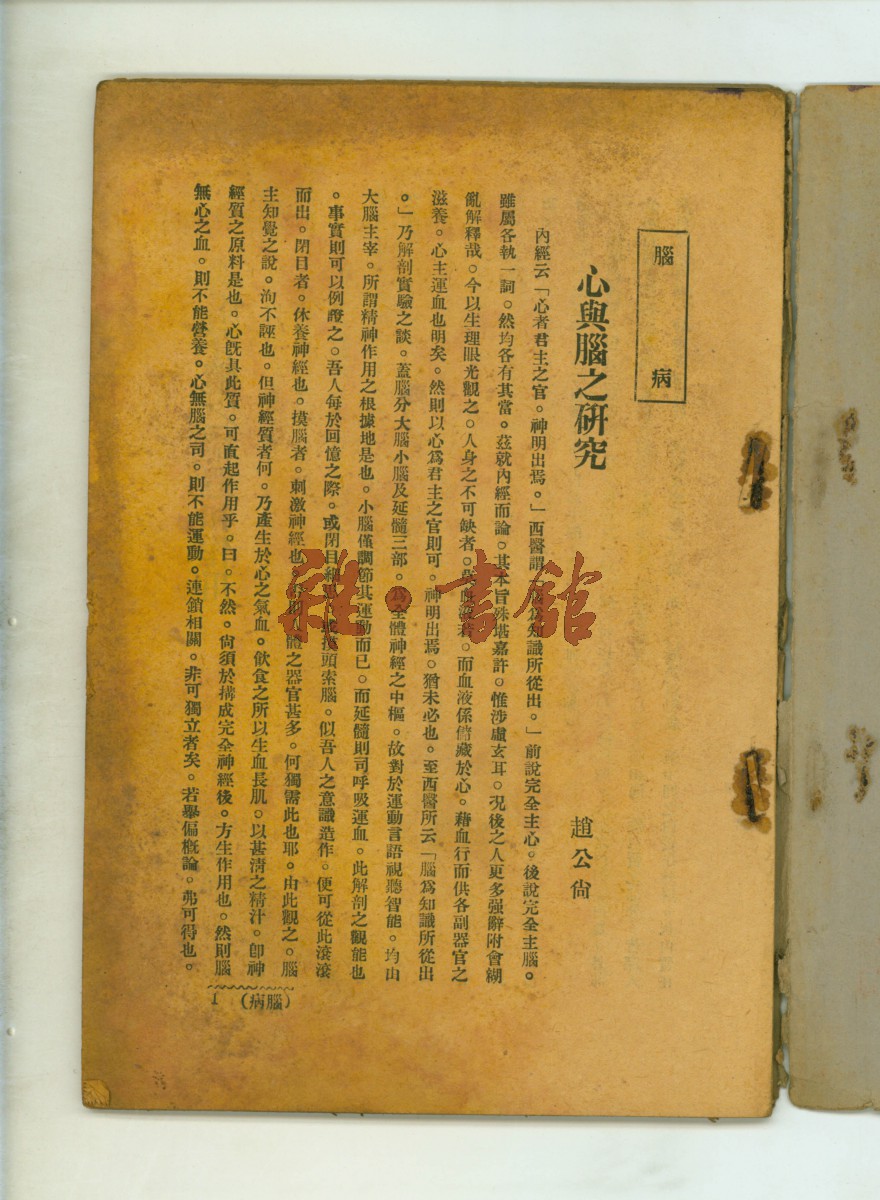 腦病
心與腦之研究
趙公尙
內經云「心者君主之官。神明出焉。」西醫謂「腦爲知識所從出。」前說完全主心。後說完全主腦。
雖屬各執一詞。然均各有其當。茲就內經而論。其本旨殊堪嘉許。惟涉虛玄耳。況後之人更多强辭附會糊
亂解釋哉。今以生理眼光觀之。人身之不可缺者。血液若。而血液係儲藏於心。藉血行而供各副器官之
滋養。心主運血也明矣。然則以心爲君主之官則可。神明出焉。猶未必也。至西醫所云「腦爲知識所從出
。」乃解剖實驗之談。蓋腦分大腦小腦及延髓三部。爲全體神經之中樞。故對於運動言語視聽智能。均由
大腦主宰。所謂精神作用之根據地是也。小腦僅調節其運動而已。而延髓則司呼吸運血。此解剖之觀能也
。事實則可以例證之。吾人每於回憶之際。或閉目 或摸頭索腦。似吾人之意識造作。便可從此滾滾
而出。閉目者。休養神經也。摸腦者。刺激神經也。 人體之器官甚多。何獨需此也耶。由此觀之。腦
主知覺之說。洵不誣也。但神經質者何。乃產生於心之氣血。飲食之所以生血長肌。以甚淸之精汁。卽神
經質之原料是也。心旣具此質。可直起作用乎。曰。不然。尙須於搆成完全神經後。方生作用也。然則腦
無心之血。則不能營養。心無腦之司。則不能運動。連鎖相關。非可獨立者矣。若舉偏概論。弗可得也。
(腦病) 1
雜·書館